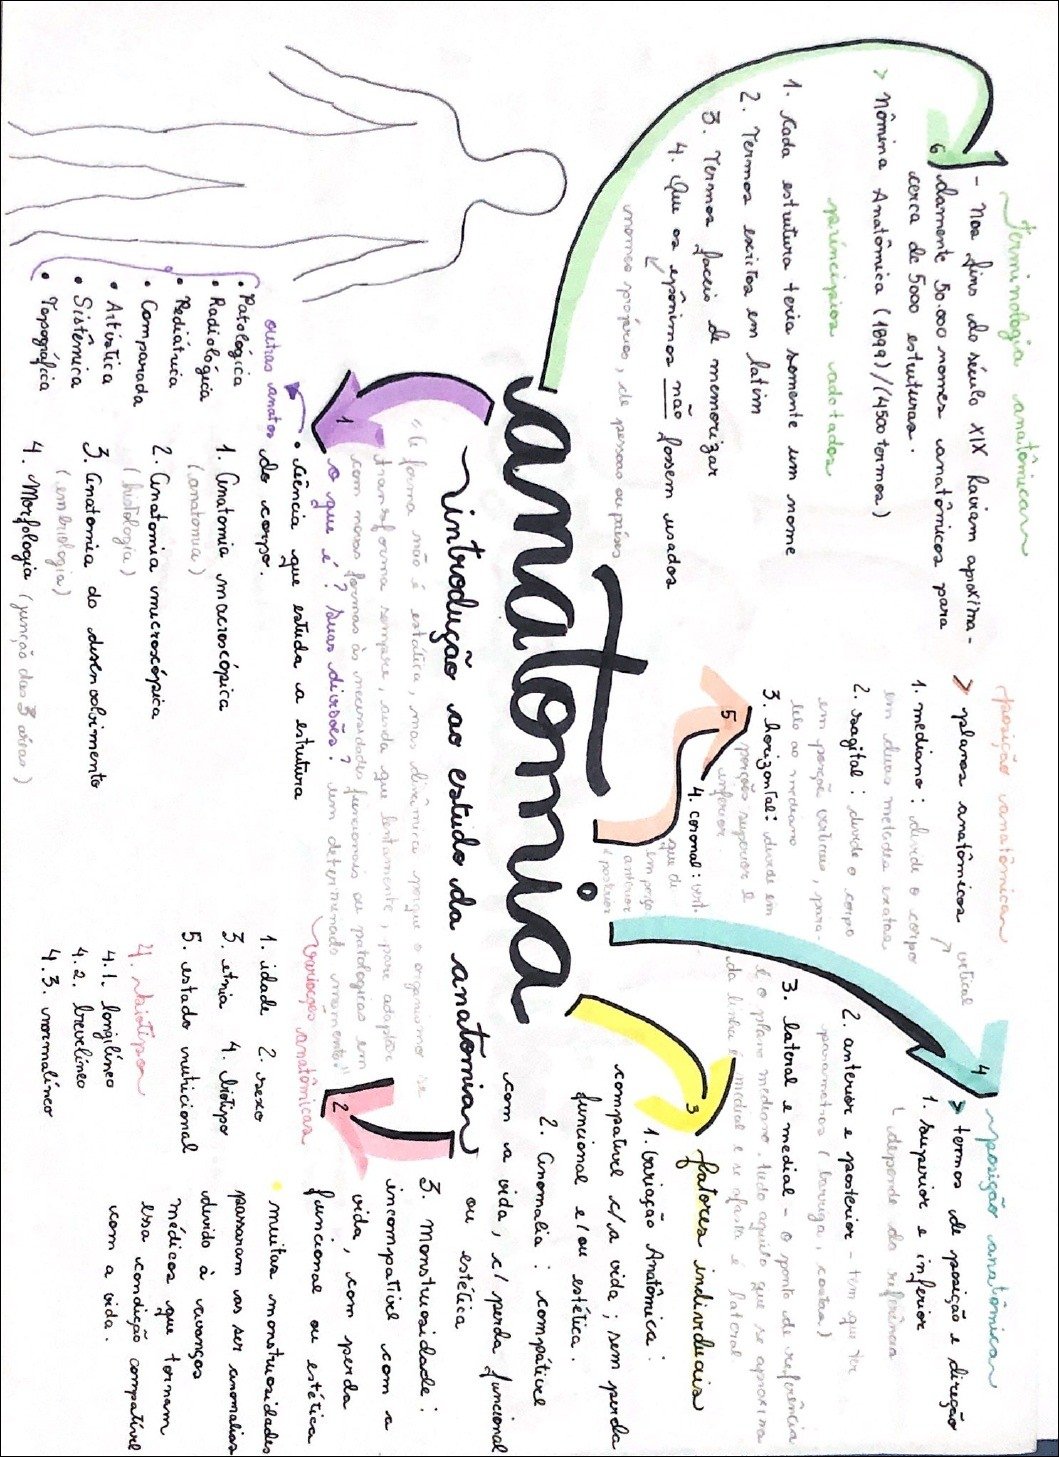 anatomia
introdução ao estudo da anatomia
1
o que é? suas divisões?
• ciência que estuda a estrutura
do corpo.
1. Anatomia macroscópica
(anatomia)
2. Anatomia microscópica
(histologia)
3. Anatomia do desenvolvimento
(embriologia)
4. Morfologia (junção das 3 áreas)
outras anatos
• Patológica
• Radiológica
• Pediátrica
• Comparada
• Artística
• Sistêmica
• Topográfica
"A forma não é estática, mas dinâmica porque o organismo se
transforma sempre, ainda que lentamente, para adaptar
com novas formas às necessidades funcionais ou patológicas em
um determinado momento"
2
variações anatômicas
1. idade 2. sexo
3. etnia 4. biotipo
5. estado nutricional
4. biotipo
4.1. longilíneo
4.2. brevelíneo
4.3. normalíneo
3
fatores individuais
1. Variação Anatômica:
compatível c/ a vida; sem perda
funcional e/ou estética.
2. Anomalia: compátivel
com a vida, c/ perda funcional
ou estética
3. Monstruosidade:
incompatível com a
vida, com perda
funcional ou estética
• muitas monstruosidades
passaram as ser anomalias
devido à avanços
médicos que tornam
essa condição compatível
com a vida.
4
posição anatômica
> termos de posição e direção
1. superior e inferior
depende da referência
2. anterior e posterior - tem que ter
parametros (barriga, costas)
3. lateral e medial - o ponto de referência
é o plano mediano. tudo aquilo que se aproxima
da linha é medial e se afasta é lateral
5
posição anatômica
> planos anatômicos
vertical
1. mediano: divide o corpo
em duas metades exatas
2. sagital: divide o corpo
em porção verticais, para-
lelo ao mediano
3. horizontal: divide em
porções superior e
inferior
4. coronal: vert.
que di
em porção
anterior
e posterior
6
terminologia anatômica
- Nos fins do século XIX haviam aproxima-
damente 50.000 nomes anatômicos para
cerca de 5000 estruturas.
> Nômina Anatômica (1899)/(4500 termos)
princípios adotados
1. Cada estrutura teria somente um nome
2. Termos escritos em latim
3. Termos faceis de memorizar
4. Que os epônimos não fossem usados
nomes próprios, de pessoas ou países